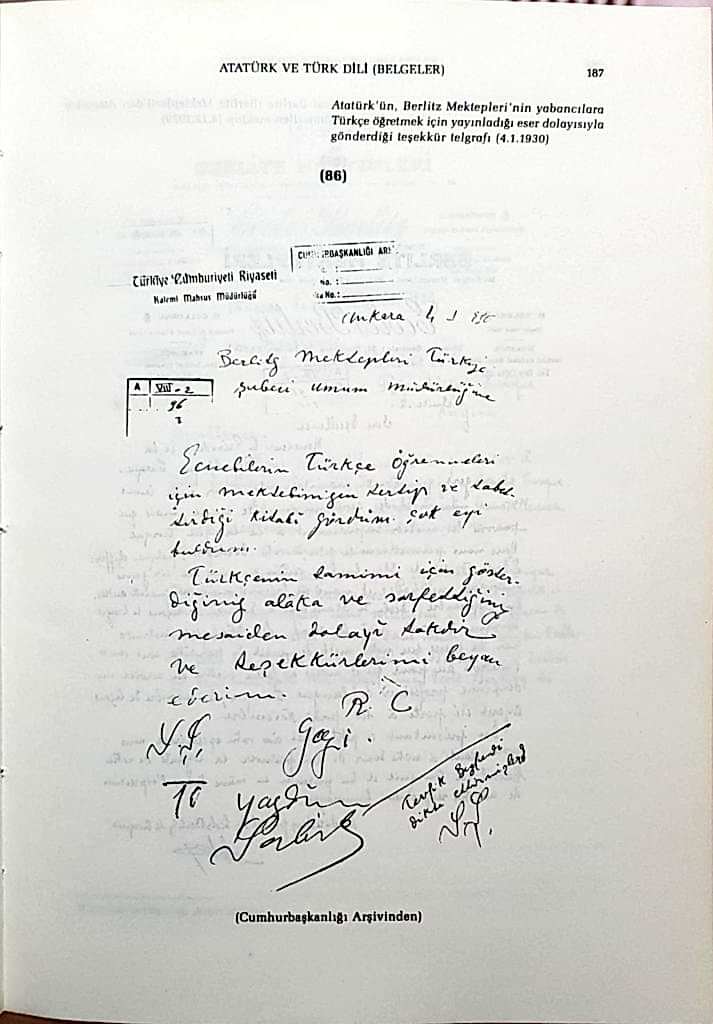 ATATÜRK VE TÜRK DİLİ (BELGELER)
187
Atatürk'ün, Berlitz Mektepleri'nin yabancılara
Türkçe öğretmek için yayınladığı eser dolayısıyla
gönderdiği teşekkür telgrafı (4.1.1930)
(86)
CUMHURBAŞKANLIĞI ARŞ
No. :
No. :
Türkiye Cümhuriyeti Riyaseti
Kalemi Mahsus Müdürlüğü
Ankara 4 1 930
Berlitz Mektepleri Türkiye
şubesi umum müdürlüğüne
A VIII-2
96
Ecnebilerin Türkçe Öğrenmeleri
için mektebinizin tertip ve tabet-
tirdiği kitabi gördüm. çok eyi
buldum.
Türkçenin tamimi için göster-
diğiniz alâka ve sarfeddiğiniz
mesaiden dolayî takdir
ve teşekkürlerimi beyan
ederim.
R. C
Gazi.
yazdım
Tevfik Beyfendi
dikte ettirmişlerd
(Cumhurbaşkanlığı Arşivinden)